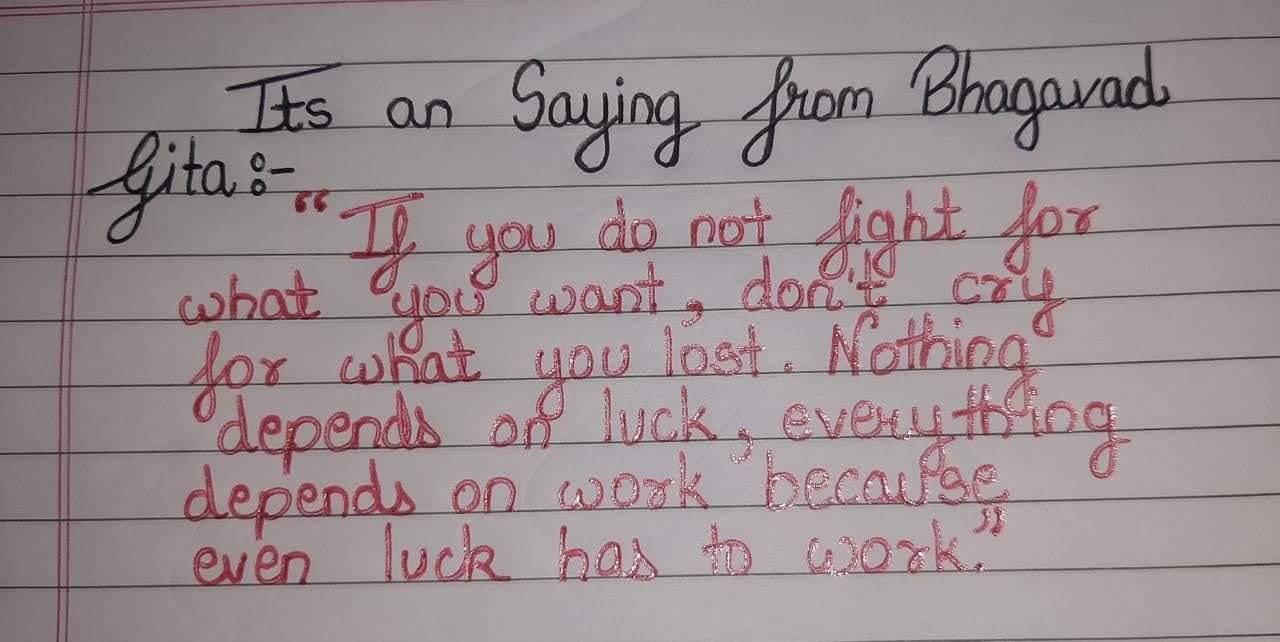 Its an Saying from Bhagavad
Gita :-
"If you do not fight for
what you want, don't cry
for what you lost. Nothing
depends on luck, everything
depends on work because
even luck has to work."